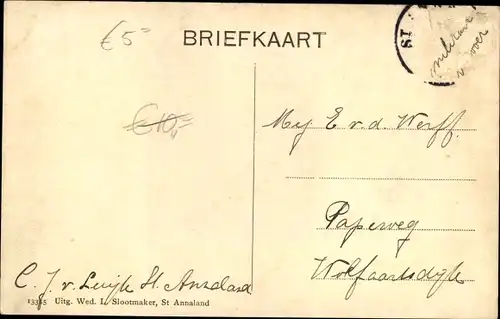 €5=
BRIEFKAART
ST
€10,=
Mej E v. d. Werff.
Paperweg
Wolfaartsdijk
C. J. v. Luijk St. Annaland
13355 Uitg. Wed. L. Slootmaker, St Annaland